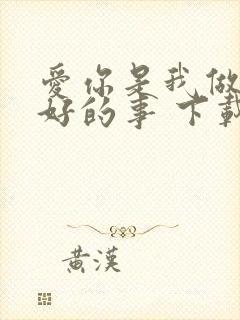 愛你是我做
好的事 下載
黃漢